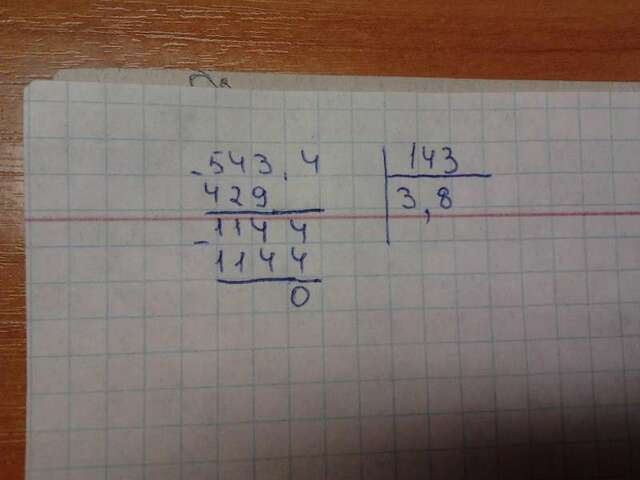 - 543,4 | 143
429 | 3,8
- 1144
1144
0